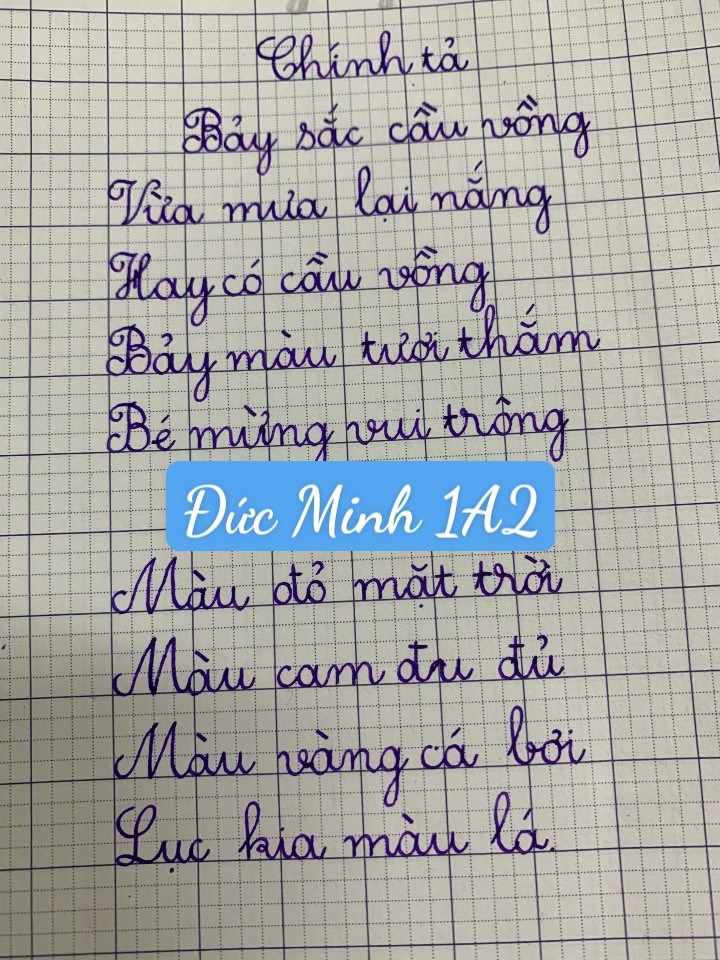 Chính tả
Bảy sắc cầu vồng
Vừa mưa lại nắng
Hay có cầu vồng
Bảy màu tươi thắm
Bé mừng vui trông
Đức Minh 1A2
Màu đỏ mặt trời
Màu cam đu đủ
Màu vàng cá bơi
Lục kia màu lá.